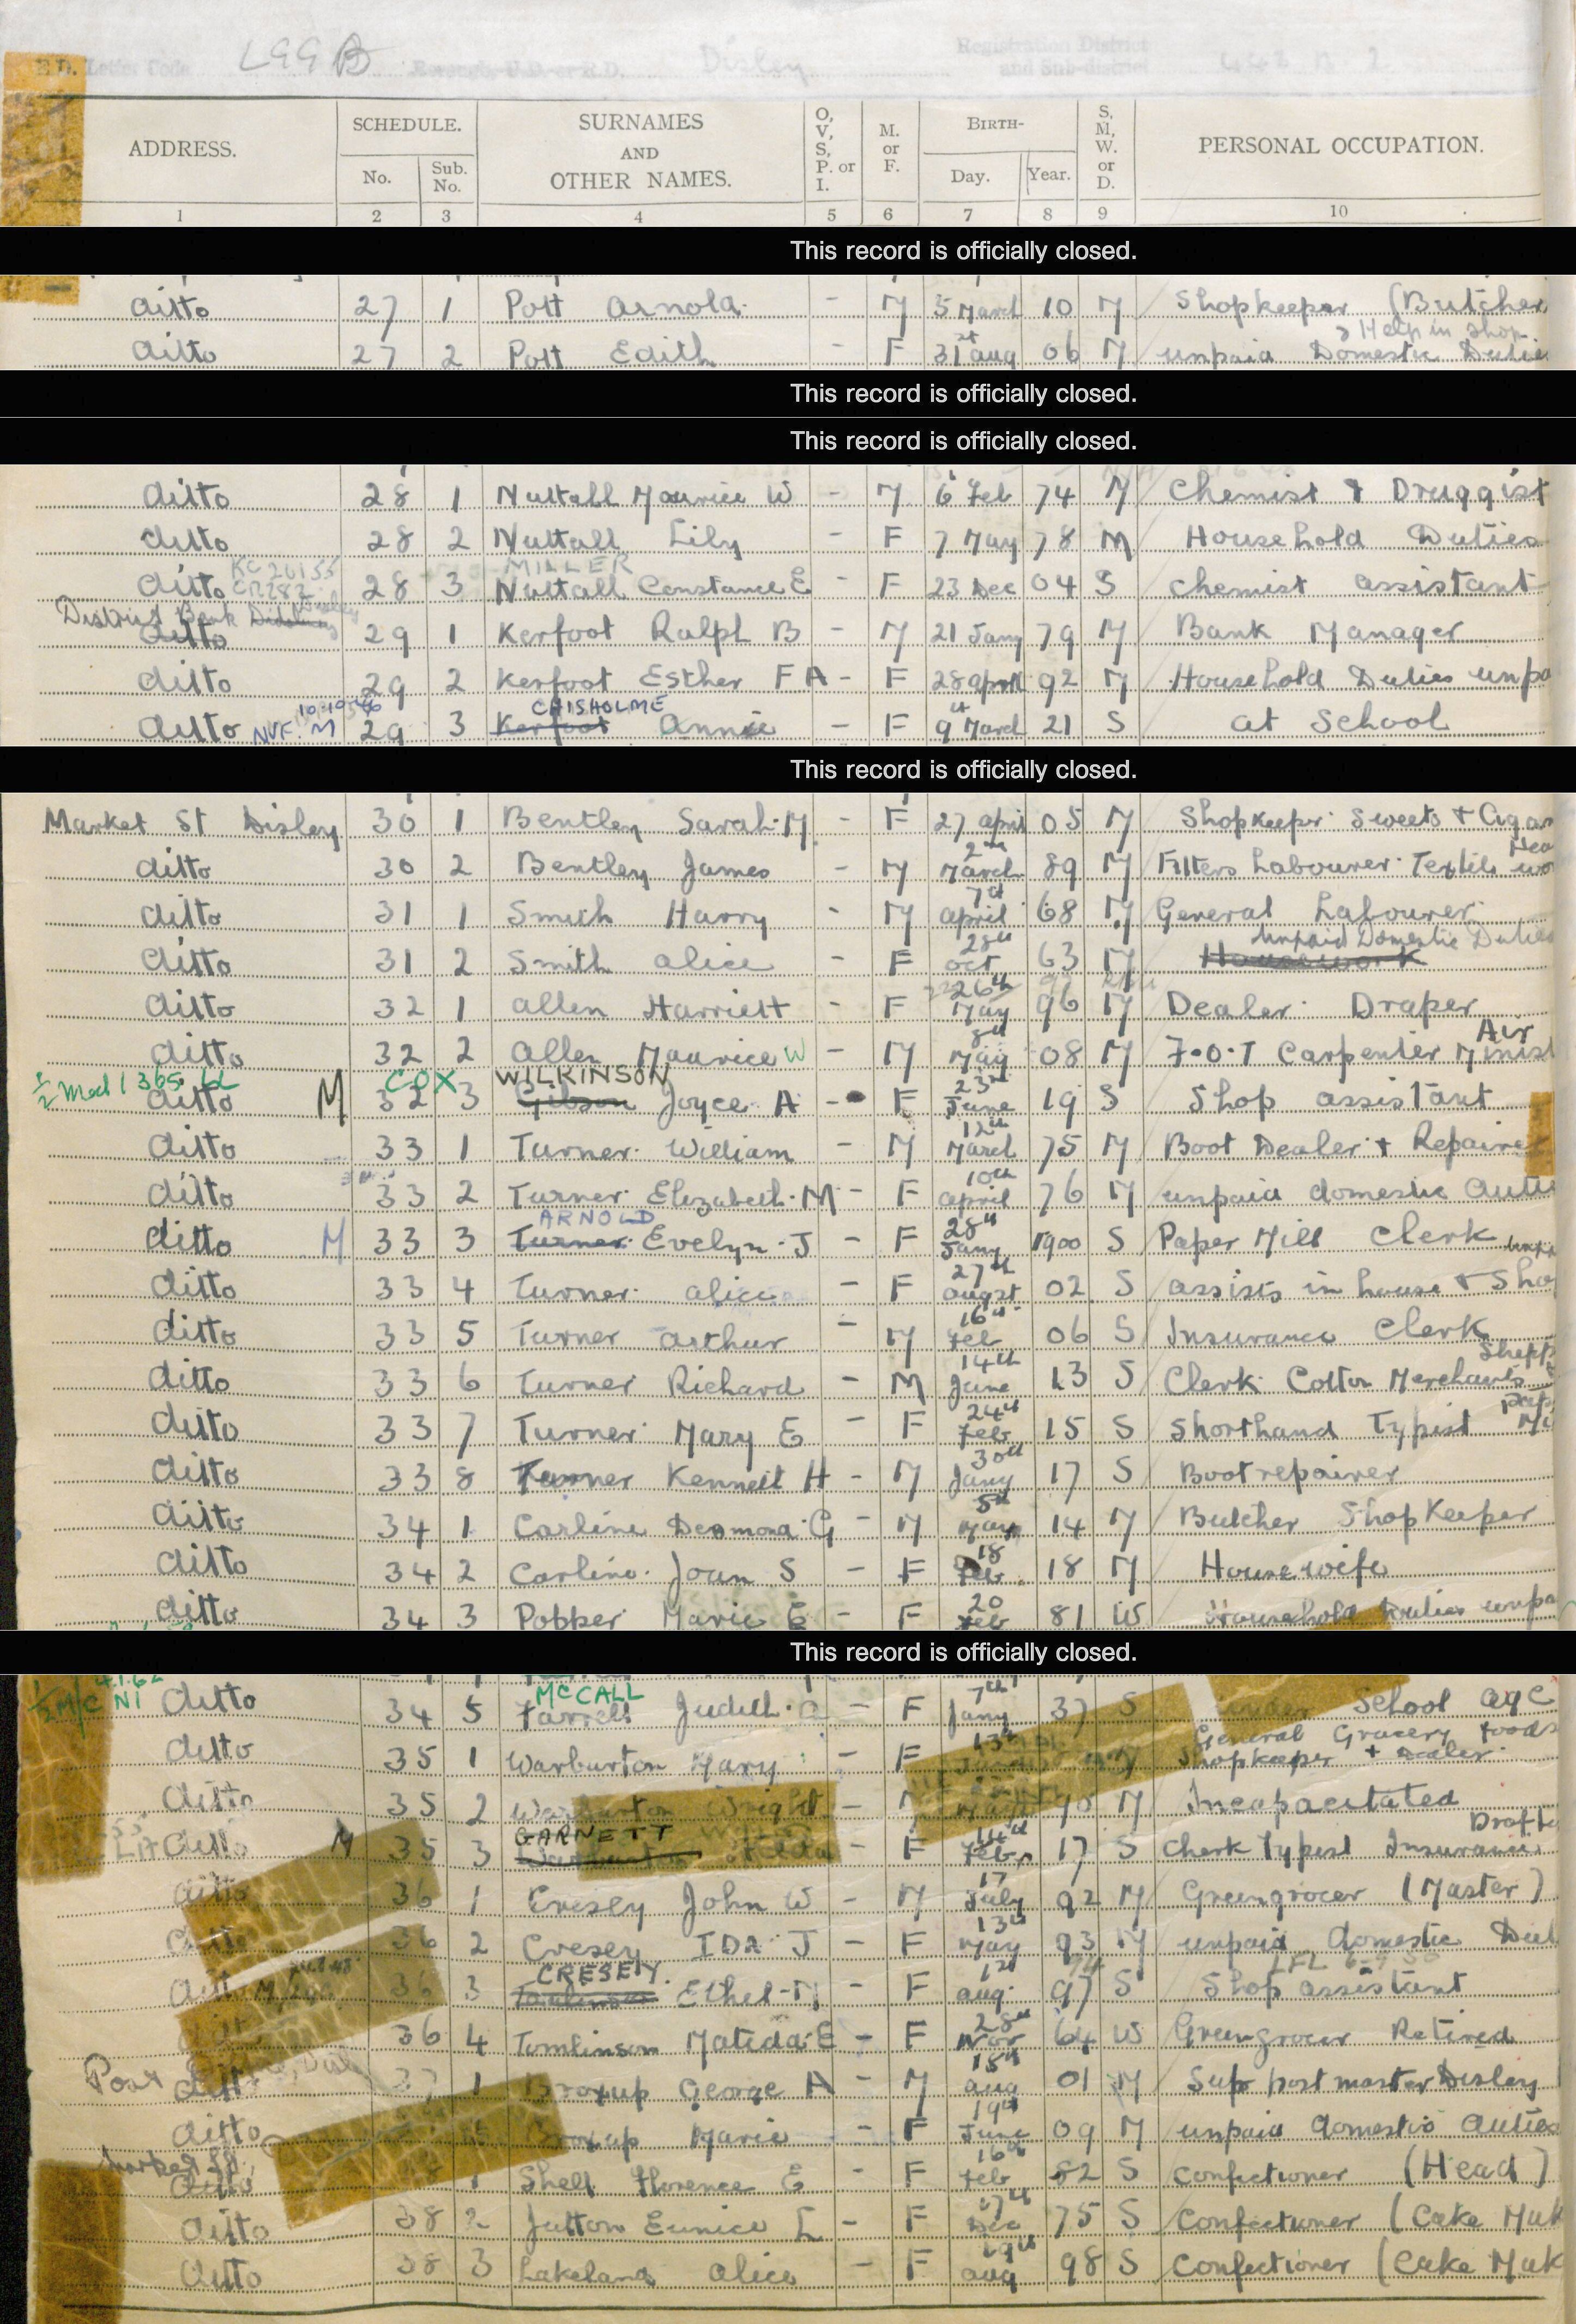 E.D. Letter Code LGGB Borough, U.D. or R.D. Disley Registration District and Sub-district
ADDRESS. SCHEDULE. No. Sub. No. SURNAMES AND OTHER NAMES. O, V, S, P. or I. M. or F. BIRTH- Day. Year. S, M, W. or D. PERSONAL OCCUPATION.
1 2 3 4 5 6 7 8 9 10
This record is officially closed.
ditto 27 1 Pott Arnold - M 5 March 10 M Shopkeeper (Butcher
& Help in Shop
ditto 27 2 Pott Edith - F 31st Aug 06 M unpaid Domestic Dutie
This record is officially closed.
This record is officially closed.
ditto 28 1 Nuttall Maurice W - M 6 Feb 74 M Chemist & Druggist
ditto 28 2 Nuttall Lily - F 7 May 78 M Household Duties
MILLER
ditto 28 3 Nuttall Constance E - F 23 Dec 04 S Chemist assistant
District Bank
ditto 29 1 Kerfoot Ralph B - M 21 Jany 79 M Bank Manager
ditto 29 2 Kerfoot Esther F A - F 28 April 92 M Household Duties unpa
CHISHOLME
ditto M 29 3 Kerfoot Annie - F 9th March 21 S at School
This record is officially closed.
Market St Disley 30 1 Bentley Sarah M - F 27 April 05 M Shopkeeper Sweets + Cigar
ditto 30 2 Bentley James - M 2nd March 89 M Fitters Labourer Textile
ditto 31 1 Smith Harry - M 7th April 68 M General Labourer
unpaid Domestic Duties
ditto 31 2 Smith Alice - F 28th Oct 63 M Housework
ditto 32 1 Allen Harriett - F 26th May 96 M Dealer Draper
Air
ditto 32 2 Allen Maurice W - M 8th May 08 M F.O.T Carpenter Minist
COX WILKINSON
ditto M 32 3 Gibson Joyce A - F 23rd June 19 S Shop assistant
ditto 33 1 Turner William - M 12th March 75 M Boot Dealer + Repairer
ditto 33 2 Turner Elizabeth M - F 10th April 76 M unpaid domestic duti
ARNOLD
ditto M 33 3 Turner Evelyn J - F 28th Jany 1900 S Paper Mill Clerk
ditto 33 4 Turner Alice - F 27th Augst 02 S assists in house + Sho
ditto 33 5 Turner Arthur - M 16th Feb 06 S Insurance Clerk
ditto 33 6 Turner Richard - M 14th June 13 S Clerk Cotton Merchants
ditto 33 7 Turner Mary E - F 24th Feb 15 S Shorthand Typist
ditto 33 8 Turner Kenneth H - M 30th Jany 17 S Boot repairer
ditto 34 1 Carline Desmond G - M 5th May 14 M Butcher Shopkeeper
ditto 34 2 Carline Joan S - F 18 Feb 18 M Housewife
ditto 34 3 Popper Marie E - F 20 Feb 81 W Household Duties unpa
This record is officially closed.
McCALL
ditto 34 5 Farrell Judith - F 7th Jany 37 S Under School age
General Grocery foods
ditto 35 1 Warburton Mary - F 13th Shopkeeper + dealer
ditto 35 2 Warburton Wright - M Incapacitated
GARNETT
ditto M 35 3 Warburton - F 14th Feb 17 S Clerk Typist Insurance
ditto 36 1 Cresey John W - M 17 July 92 M Greengrocer (Master)
ditto 36 2 Cresey IDA J - F 13th May 93 M unpaid domestic Duti
CRESEY
ditto 36 3 Tomlinson Ethel M - F 12th Aug 97 S Shop assistant
ditto 36 4 Tomlinson Matilda E - F 28th Nov 64 W Greengrocer Retired
Post
ditto 37 1 Broxup George A - M 18th Aug 01 M Sub postmaster Disley
ditto Broxup Marie - F 19th June 09 M unpaid domestic duties
Market St
ditto 1 Shell Florence E - F 16th Feb 82 S Confectioner (Head)
ditto 38 2 Jutton Eunice L - F 27th Dec 75 S Confectioner (Cake Mak
ditto 38 3 Lakeland Alice - F 19th Aug 98 S Confectioner (Cake Mak